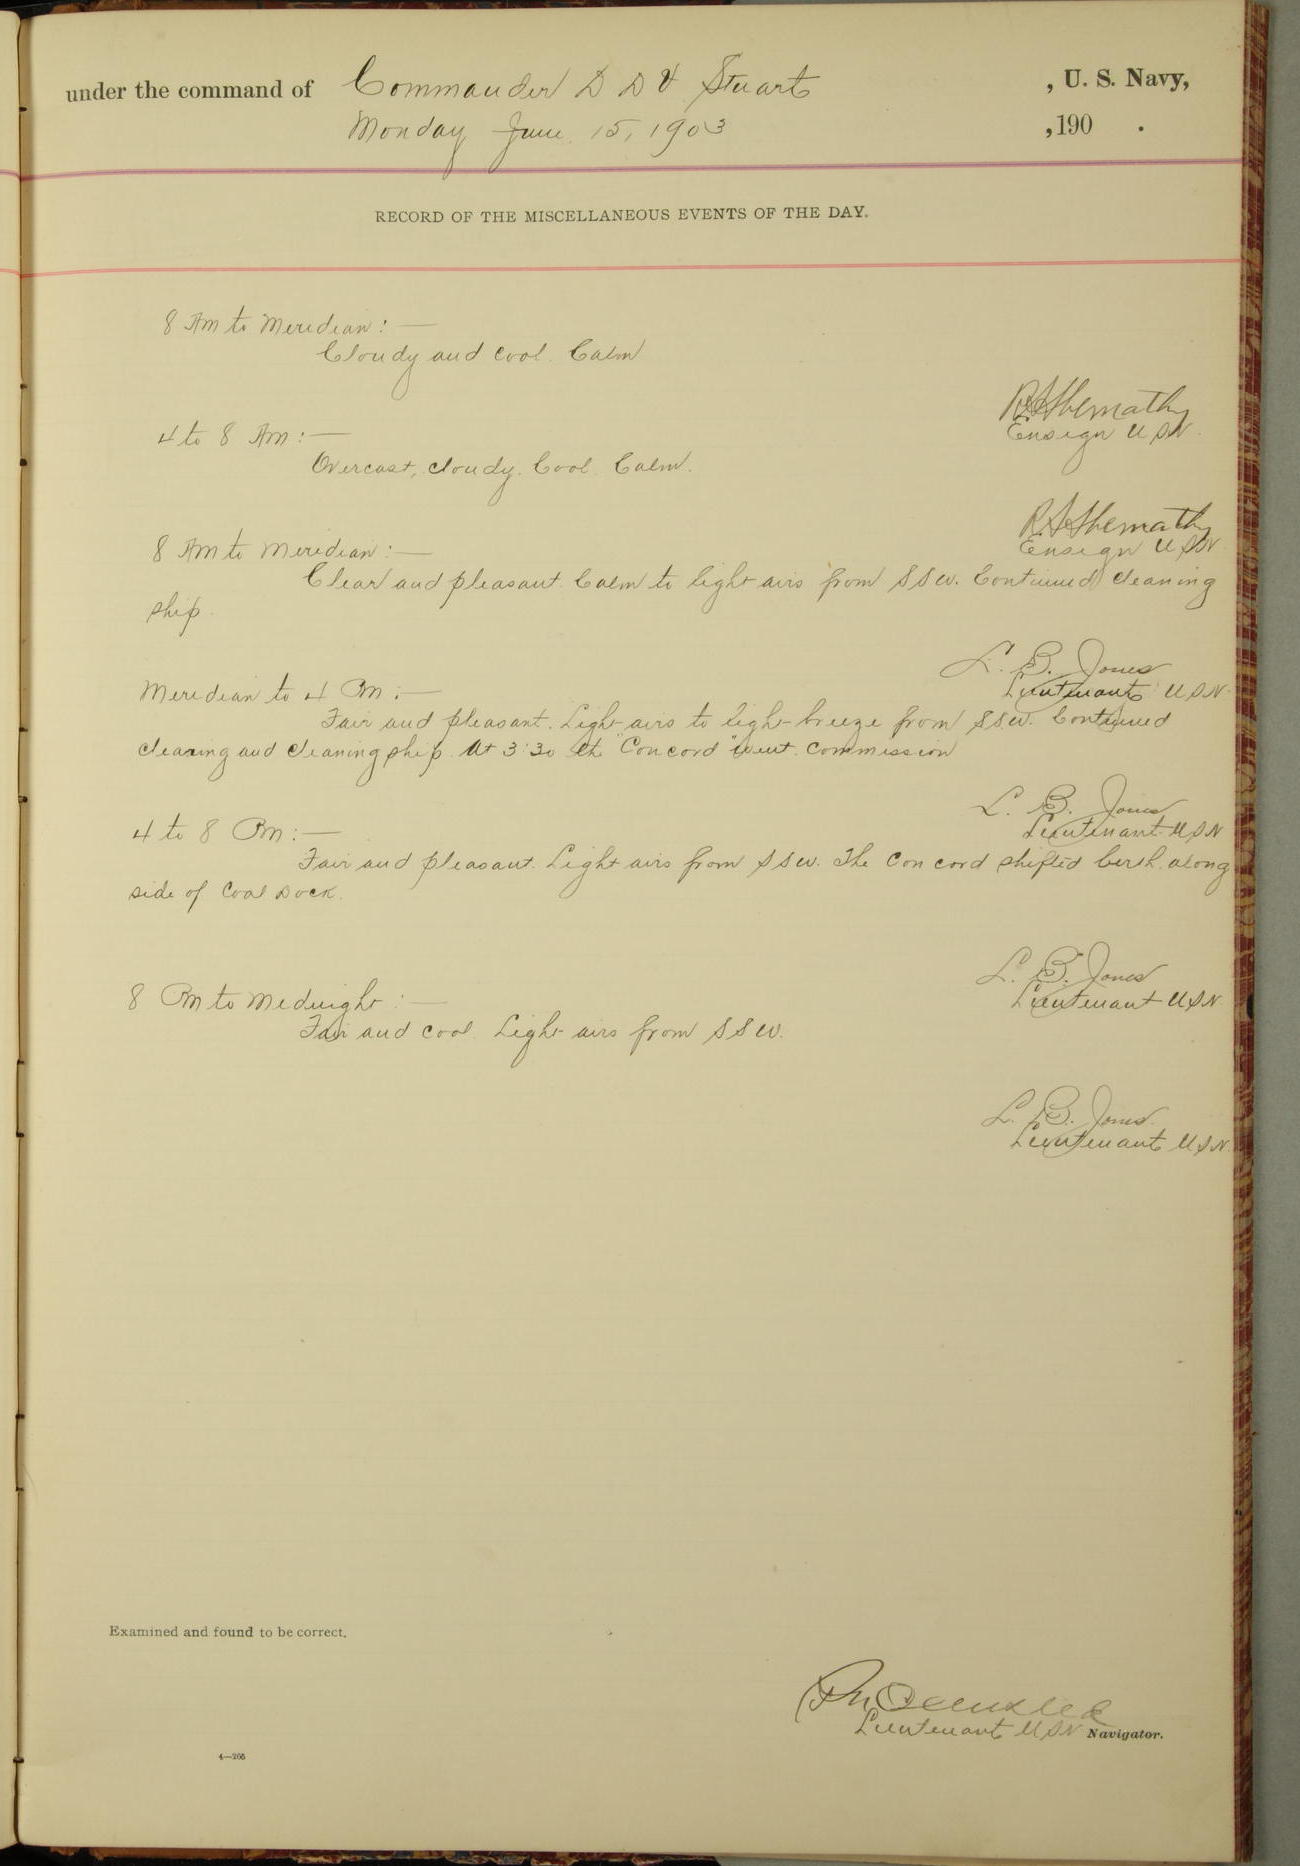 under the command of Commander D D V Stuart , U. S. Navy,
Monday June 15, 1903 , 190 .
RECORD OF THE MISCELLANEOUS EVENTS OF THE DAY.
8 Am to Meridian : —
Cloudy and cool. Calm
Ensign U S N.
4 to 8 Am : —
Overcast, cloudy. Cool. Calm.
Ensign U S N.
8 Am to Meridian : —
Clear and pleasant. Calm to light airs from S S W. Continued cleaning
ship.
L. B. Jones
Lieutenant U S N.
Meridian to 4 Pm : —
Fair and pleasant. Light airs to light breeze from S S W. Continued
clearing and cleaning ship. At 3:30 the "Concord" went commission
L. B. Jones
Lieutenant U S N
4 to 8 Pm : —
Fair and pleasant. Light airs from S S W. The Concord shifted berth along
side of Coal Dock.
L. B. Jones
Lieutenant U S N.
8 Pm to Midnight : —
Fair and cool. Light airs from S S W.
L. B. Jones
Lieutenant U S N.
Examined and found to be correct.
Lieutenant U S N Navigator.
4—265